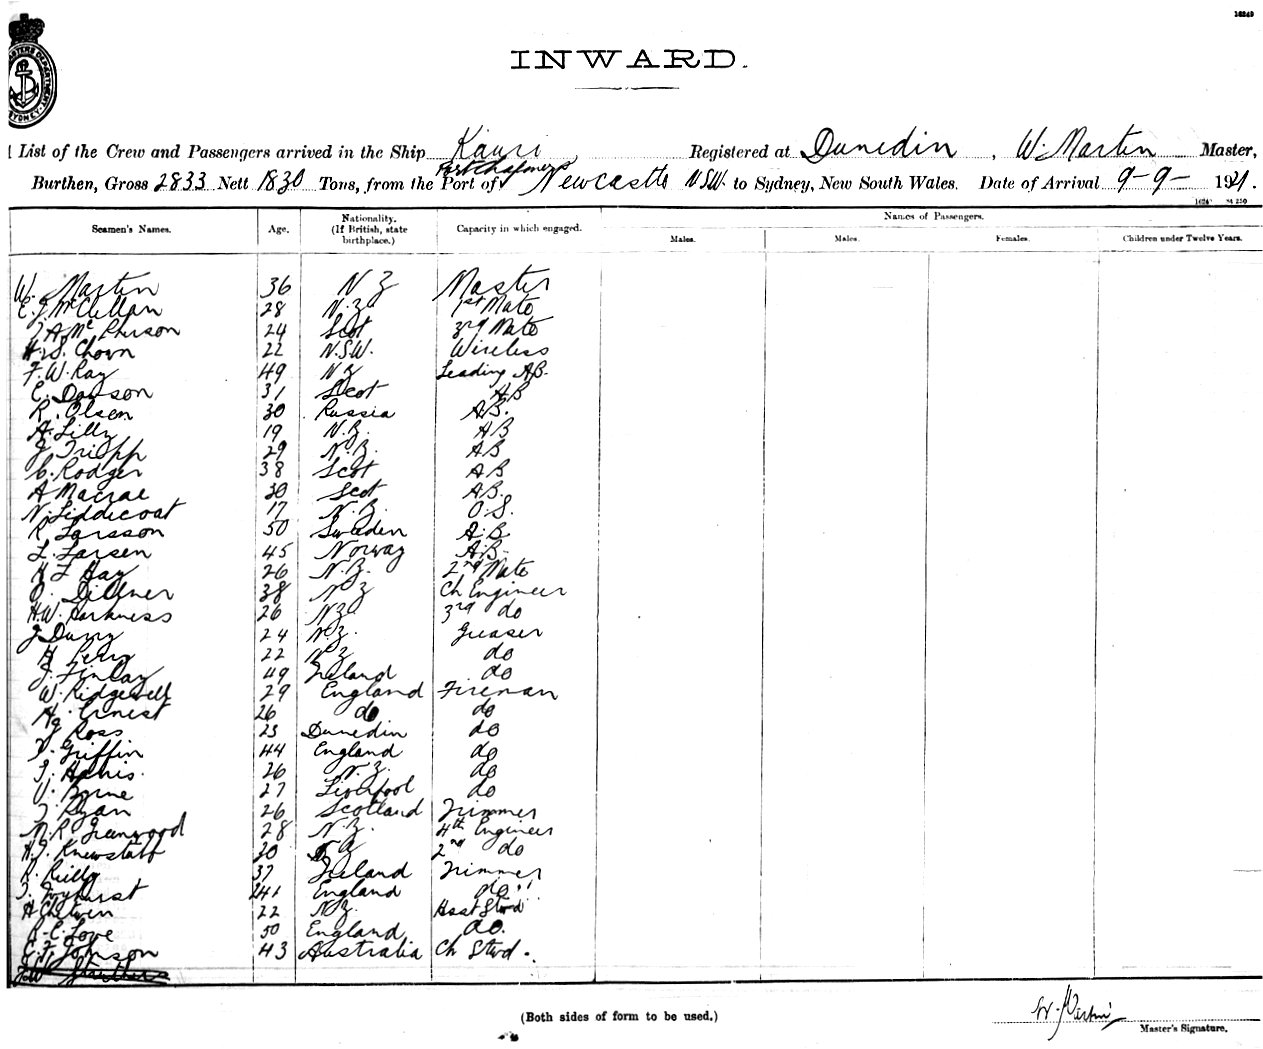 16249
CUSTOMS DEPARTMENT
SYDNEY
INWARD.
List of the Crew and Passengers arrived in the Ship Kauri Registered at Dunedin, W. Martin Master,
Port Chalmers
Burthen, Gross 2833 Nett 1830 Tons, from the Port of Newcastle NSW. to Sydney, New South Wales. Date of Arrival 9-9- 1921.
Seamen's Names. Age. Nationality. (If British, state birthplace.) Capacity in which engaged. Names of Passengers.
Males. Males. Females. Children under Twelve Years.
W. Martin 36 N Z Master
E. J. McClellan 28 N.Z. 1st Mate
J A McPherson 24 Scot 3rd Mate
H. S. Chorn 22 N.S.W. Wireless
F. W. Ray 49 N Z Leading AB.
C. Dawson 31 Scot AB
R. Olsen 30 Russia AB.
A. Lilly 19 N.Z. AB
J Tripp 29 N.Z. AB
C. Rodger 38 Scot AB
A Macrae 30 Scot AB.
N. Liddicoat 17 N.Z. O.S.
R Larsson 50 Sweden A.B
L. Larsen 45 Norway A.B.
H L Hay 26 N.Z. 2nd Mate
O. Dillner 38 N Z Ch Engineer
H.W. Harkness 26 NZ 3rd do
J Durry 24 N.Z. Greaser
H Perry 22 N Z do
J. Finlay 49 Ireland do
W. Ridgewell 29 England Fireman
Hy Ernest 26 do do
J Ross 23 Dunedin do
D. Griffin 44 England do
J. Harris. 26 N.Z. do
V. Byrne 27 Liverpool do
J Ryan 26 Scotland Trimmer
N. R. Greenwood 28 N.Z. 4th Engineer
H. J. Knewstubb 30 N Z 2nd do
R. Reilly 37 Ireland Trimmer
J. 41 England do
H Chetwin 22 N.Z. Asst Stwd
A. C. Love 50 England do.
E. F. Johnson 43 Australia Ch Stwd.
J.W. Struthers
(Both sides of form to be used.)
W. Martin
Master's Signature.